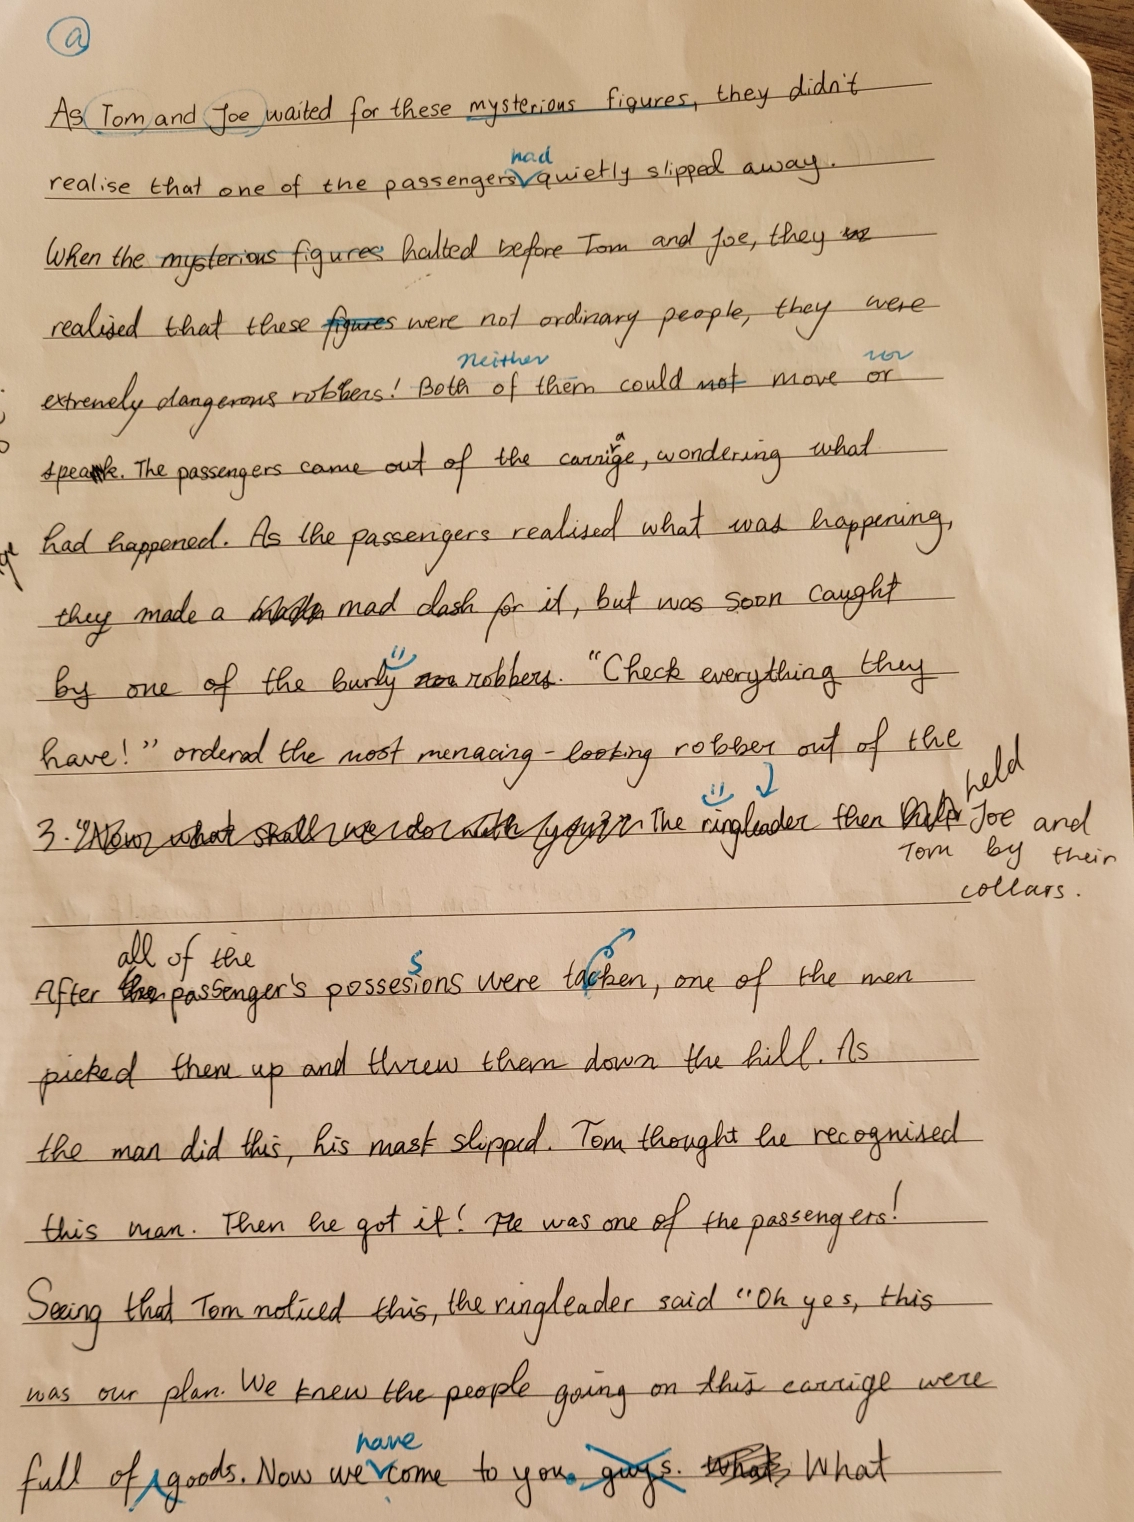 a
As Tom and Joe waited for these mysterious figures, they didn't
had
realise that one of the passengers quietly slipped away.
When the mysterious figures halted before Tom and Joe, they
realised that these figures were not ordinary people, they were
Neither nor
extremely dangerous robbers! Both of them could not move or
a
speak. The passengers came out of the carrige, wondering what
had happened. As the passengers realised what was happening,
they made a mad dash for it, but was soon caught
by one of the burly robbers. "Check everything they
have!" ordered the most menacing-looking robber out of the
held
3. "Now what shall we do with you?" The ringleader then Joe and
Tom by their
collars.
all of the s
After the passenger's possesions were tacken, one of the men
picked them up and threw them down the hill. As
the man did this, his mask slipped. Tom thought he recognised
this man. Then he got it! He was one of the passengers!
Seeing that Tom noticed this, the ringleader said "Oh yes, this
was our plan. We knew the people going on this carrige were
have
full of goods. Now we come to you guys. What What